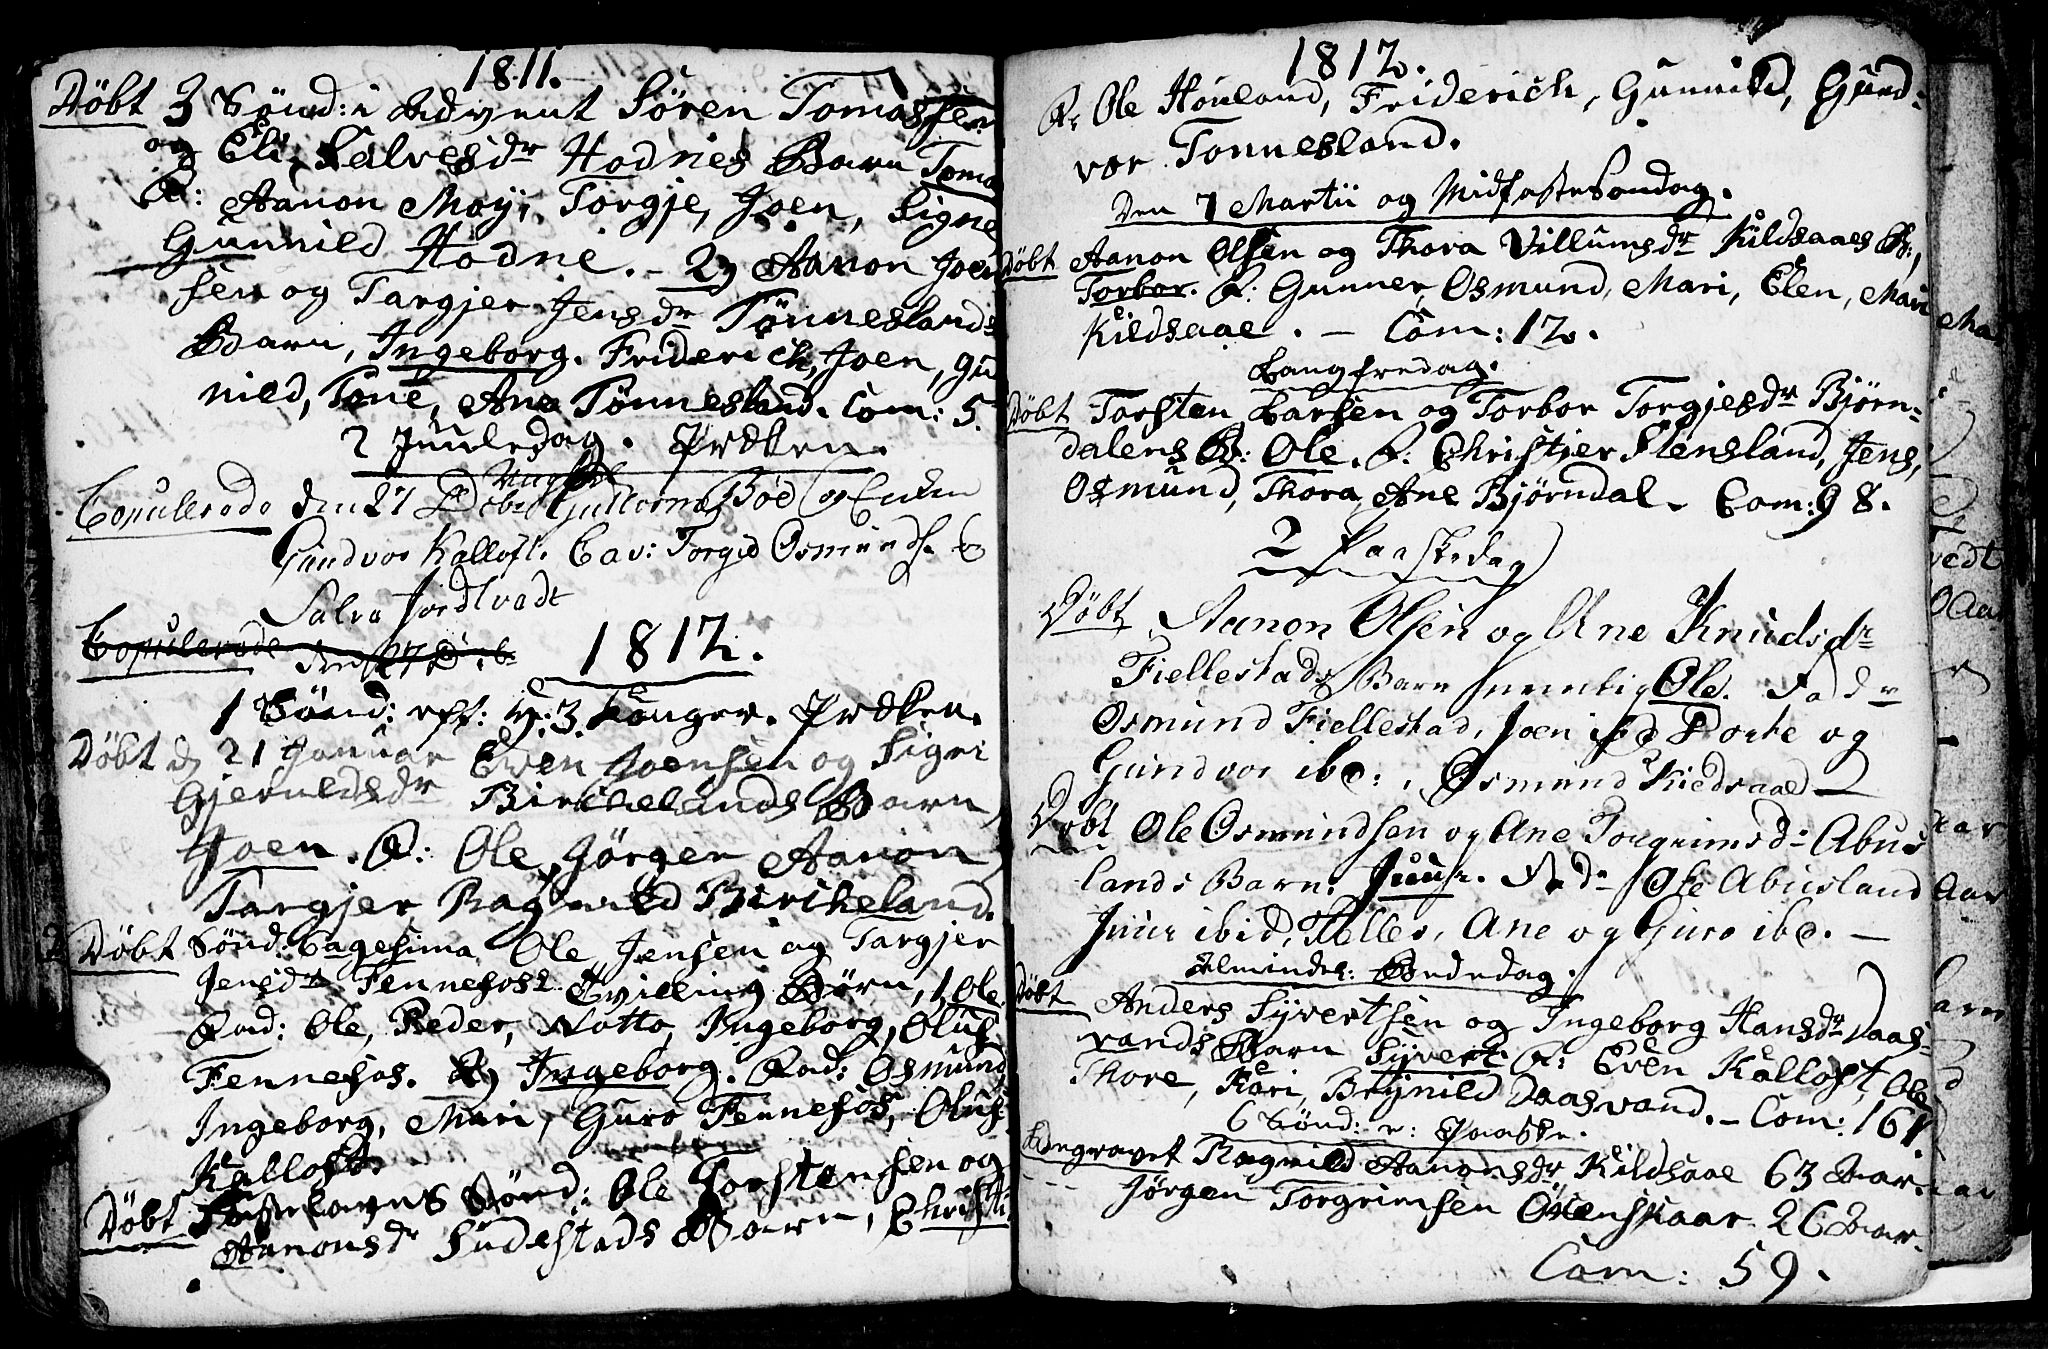 1811.
Döbt 3 Sönd: i Advent Sören Tomassen
og Eli Salvesdr Hodnes Barn Tomas
F: Aanon Moy, Torgje, Joen, Signe
Gunnild Hodne. - 2) Aanon Joen
sen og Targjer Jensdr Tönneslands
Barn, Ingeborg. Friderich, Joen, Gu
nild, Tone, Ane Tönnesland. Com: 5.
2 Juuledag. Præken.
Copulerede den 27 Dcbr Guttorms Böe og Enken
Gundvor Kalloft. Cav: Torgie Osmunds. &
Salve Jordtvedt
Copulerede den 27 D
1812.
1 Sönd: eft: h: 3 Konger. Præken.
Döbt d 21 Januar Even Joensen og Signi
Gjeruldsdr Birchelands Barn,
Joen. F: Ole, Jörgen Aanon
Targjer Ragnild Bircheland.
Döbt Sönd: Sagesima Ole Jensen og Targjer
Jensdr Fennefos Tvilling Börn, 1 Ole
Fad: Ole, Peder, Notto, Ingeborg, Oluf
Fennefos. 2) Ingeborg. Fad: Osmund
Ingeborg, Mari, Guro Fennefos, Oluf
Kalloft.
Döbt Fastelavns Sönd: Ole Torstensen og
Aanonsdr Sudestads Barn, Christi
1812.
F: Ole Houland, Friderich, Gunnild, Gund-
vor Tonnesland.
Den 7 Martii og Midfaste Sondag.
Döbt Aanon Olsen og Thora Villumsdr Kildsaaes B:,
Torbor. F: Gunner, Osmund, Mari, Elen, Mari
Kildsaae. - Com: 12.
Langfredag.
Döbt Torsten Larsen og Torbor Torgjesdr Björn-
dalens B: Ole. F: Christjer Flensland, Jens,
Osmund, Thora, Ane Björndal. Com: 98.
2 Paaskedag
Döbt Aanon Olsen og Ane Knudsdr
Fiellestads Barn nemlig Ole. Fadr
Osmund Fiellestad, Joen ibd Dorte og
Gundvor ibd:, Osmund Kiedsaae
Döbt Ole Osmundsen og Ane Torgrimsdr Abus
lands Barn. Juur. Fadr Ole Abusland
Juur ibid, Telles, Ane og Guro ibd. -
Almindel: Bededag.
Döbt Anders Syvertsen og Ingeborg Hansdr Daas-
vands Barn Syvert. F: Even Kalloft, Ole
Thore, Kari, Brynild Daasvand. - Com: 161
6 Sönd: e: Paaske.
Begravet Ragnild Aanonsdr Kildsaae 63 Aar.
Jörgen Torgrimsen Öienskaar 26 Aar.
Com: 59.